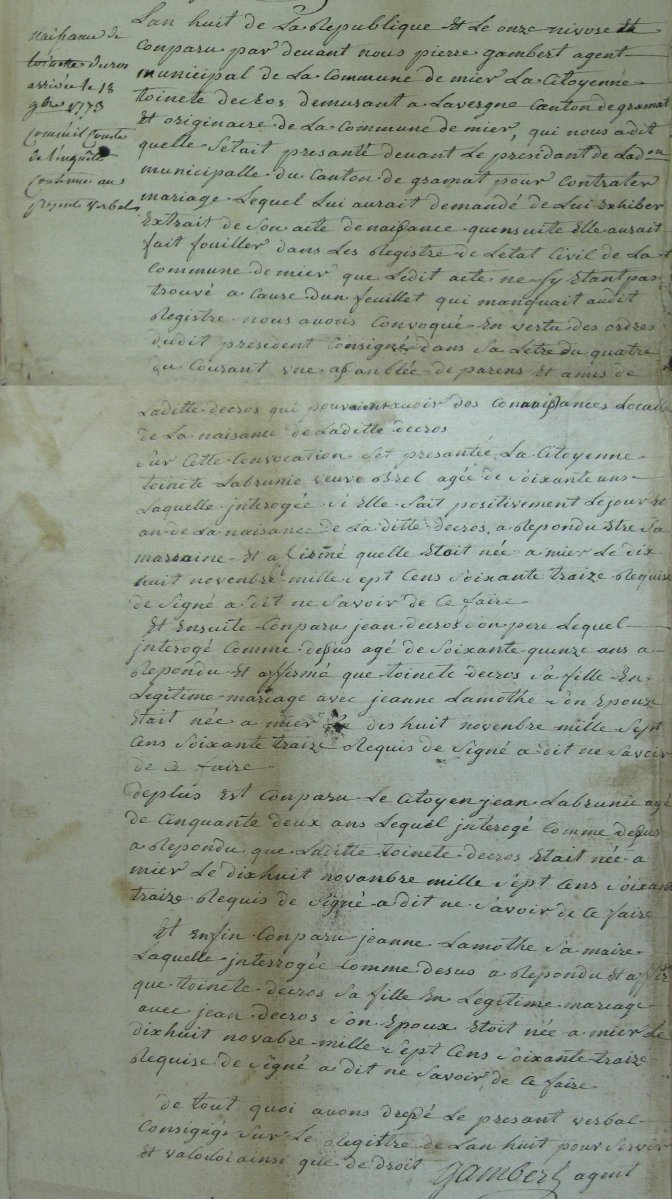 naissance de
toinette decros
arrivée le 18
9bre 1773
comm'il conste
de l'inquête
contenue au
present verbal
Lan huit de La Republique Et Le onze nivose
Conparu par devant nous pierre gambert agent
municipal de La Commune de mier La Citoyenne
toinete decros demurant a Lavergne Canton de gramat
Et originaire de La Commune de mier, qui nous a dit
quelle Setait presanté devant Le presidant de Ladon
municipalle du Canton de gramat pour Contrater
mariage Lequel Lui aurait demandé de Lui Exhiber
Extrait de Son acte de naissance quensuite Elle aurait
fait fouiller dans Les Registre de Letat Civil de La
Commune de mier que Ledit acte ne Sy Etant pas
trouvé a Cause dun feuillet qui manquait audit
Registre nous avons Convoqué En vertu des ordres
dudit president Consigné dans Sa Letre du quatre
du Courant une assanblée de parens Et amis de
Laditte decros qui pouvaient avoir des Connaissances Locale
de La naisance de Laditte decros
Sur Cette Convocation Set presantée La Citoyenne
toinete Labrunie veuve agée de Soixante ans
Laquelle jnterogée Si Elle Sait positivement Le jour Et
an de La naisance de La ditte decros, a Repondu Etre Sa
marraine Et a firmé quelle Etoit née a mier Le dix
huit novenbre mille Sept Cens Soixante traize Requise
de Signé a dit ne Savoir de Ce faire
Et Ensuite Conparu jean decros Son pere Lequel
jnterogé Comme desus agé de Soixante quinze ans a
Repondu Et affirmé que toinete decros Sa fille En
Legitime mariage avec jeanne Lamothe Son Epouze
Etait née a mier Le dishuit novenbre mille Sept
Cens Soixante traize Requis de Signé a dit ne Savoir
de Ce faire
deplus Est Conparu Le Citoyen jean Labrunie agé
de Cinquante deux ans Lequel jnterogé Comme desus
a Repondu que Laditte toinete decros Etait née a
mier Le dixhuit novanbre mille Sept Cens Soixante
traize Requis de Signé a dit ne Savoir de Ce faire
Et Enfin Conparu jeanne Lamothe Sa maire
Laquelle jnterrogée Comme desus a Repondu Et affir
que toinete decros Sa fille En Legitime mariage
avec jean decros Son Epoux Etoit née a mier Le
dixhuit novabre mille Sept Cens Soixante traize
Requise de Signé a dit ne Savoir de Ce faire
de tout quoi avons dressé Le presant verbal
Consigné Sur Le Registre de Lan huit pour Servir
Et valoir ainsi que de droit gambert agent